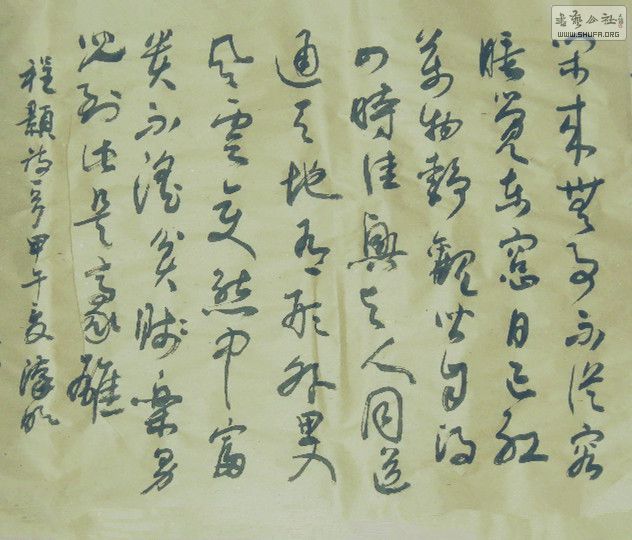 书艺公社
WWW.SHUFA.ORG
閑來無事不從容
睡覺東窓日已紅
萬物靜觀皆自得
四時佳興与人同道
通天地有形外思入
風雲變態中富
貴不淫貧賤樂男
兒到此是豪雄
程顥詩 甲午夏